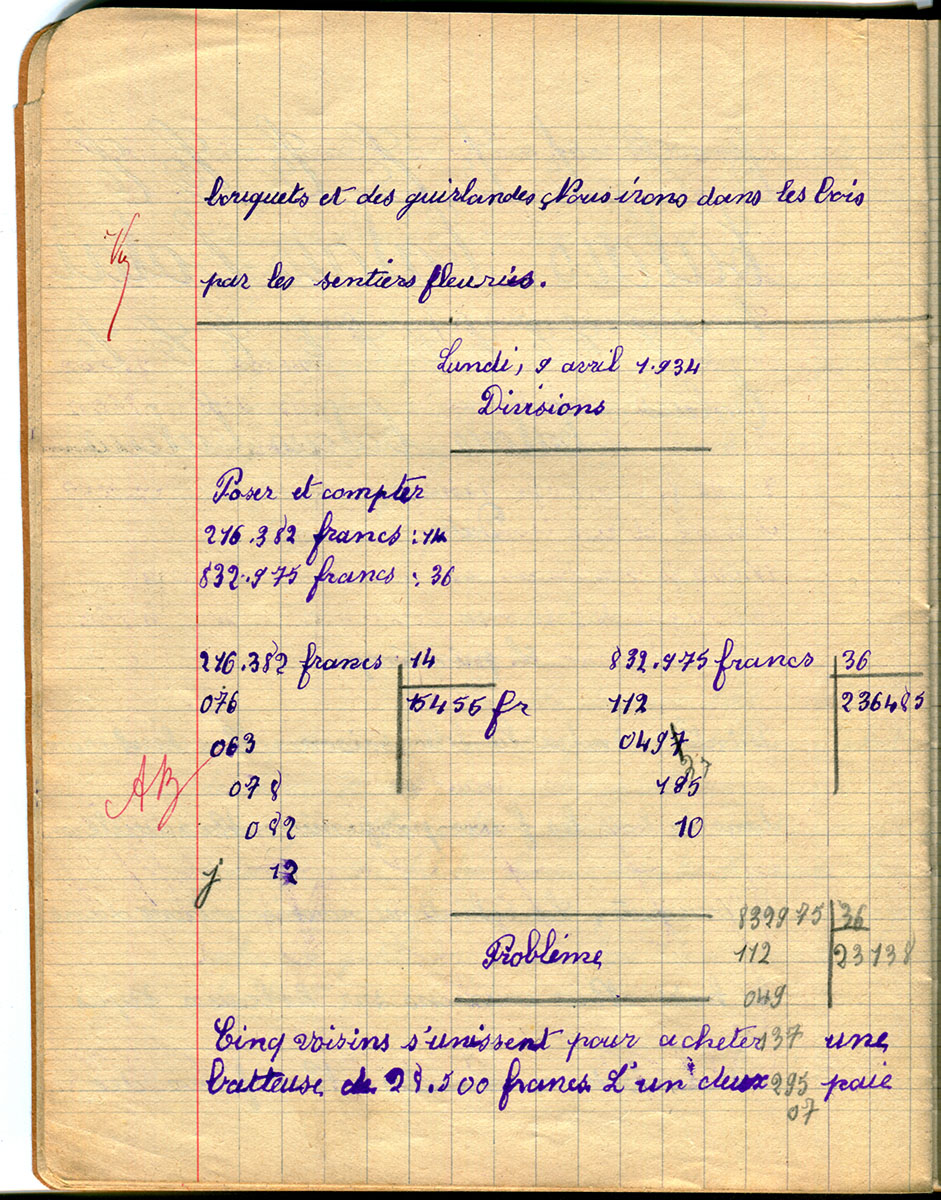 bouquets et des guirlandes, Nous irons dans les bois
Vu
par les sentiers fleuris.
Lundi, 9 avril 1.934
Divisions
Poser et compter
216.382 francs : 14
832.975 francs : 36
216.382 francs 14
076 15456 fr
063
078
082
j 12
AB
832.975 francs 36
112 236485
0497
37
185
10
Problème
832975 36
112 23138
049
137
295
07
Cinq voisins s'unissent pour acheter une
batteuse de 28.500 francs. L'un deux paie